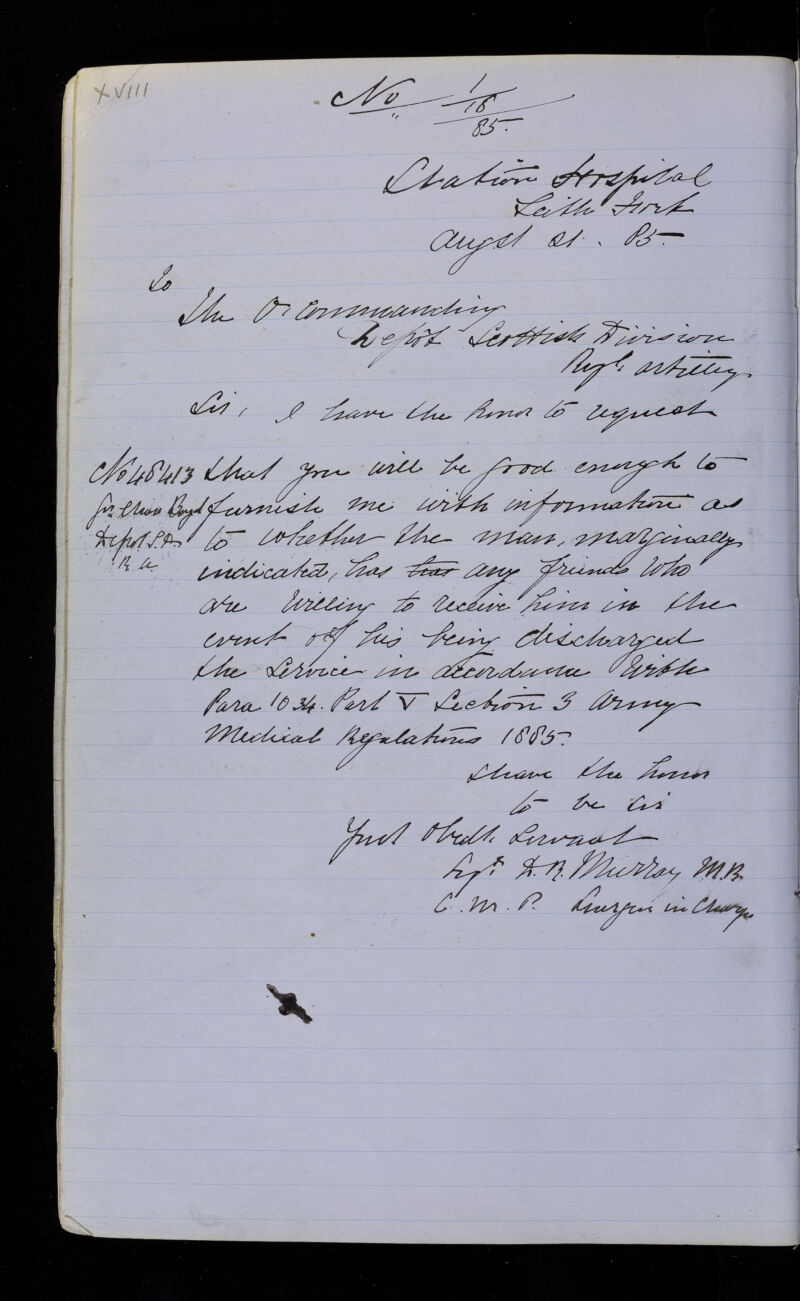 XVIII
No 1/18/85.
Station Hospital
Leith Fort
Augst 21. 85.
To
The Or Commanding
Depôt Scottish Division
Rugl Artillery
Sir, I have the honor to request
No 48413 that you will be good enough to
Gr. Boyd furnish me with information as
Depot S.D. to whether the man, marginally
R.A. indicated, has has any friends who
are willing to receive him in the
event of his being discharged
the Service in accordance with
Para 1034. Part V Section 3 Army
Medical Regulations 1885.
I have the honor
to be Sir
Your Obedt Servant
Sigd D.R. Murray M.B.
Surgeon in Charge